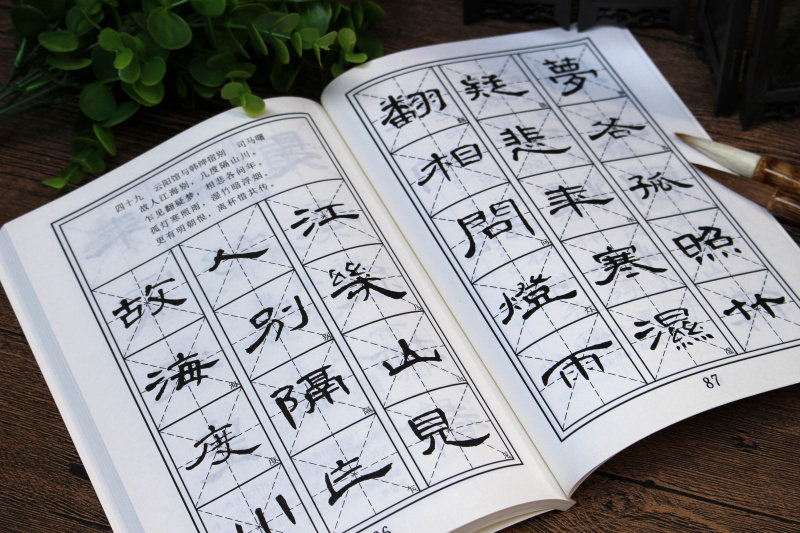 四十九 云阳馆与韩绅宿别 司马曙
故人江海别，几度隔山川。
乍见翻疑梦，相悲各问年。
孤灯寒照雨，湿竹暗浮烟。
更有明朝恨，离杯惜共传。
故人江
海别幾
度隔山
川乍見
翻疑夢
相悲各
問年孤
燈寒照
雨濕竹
87